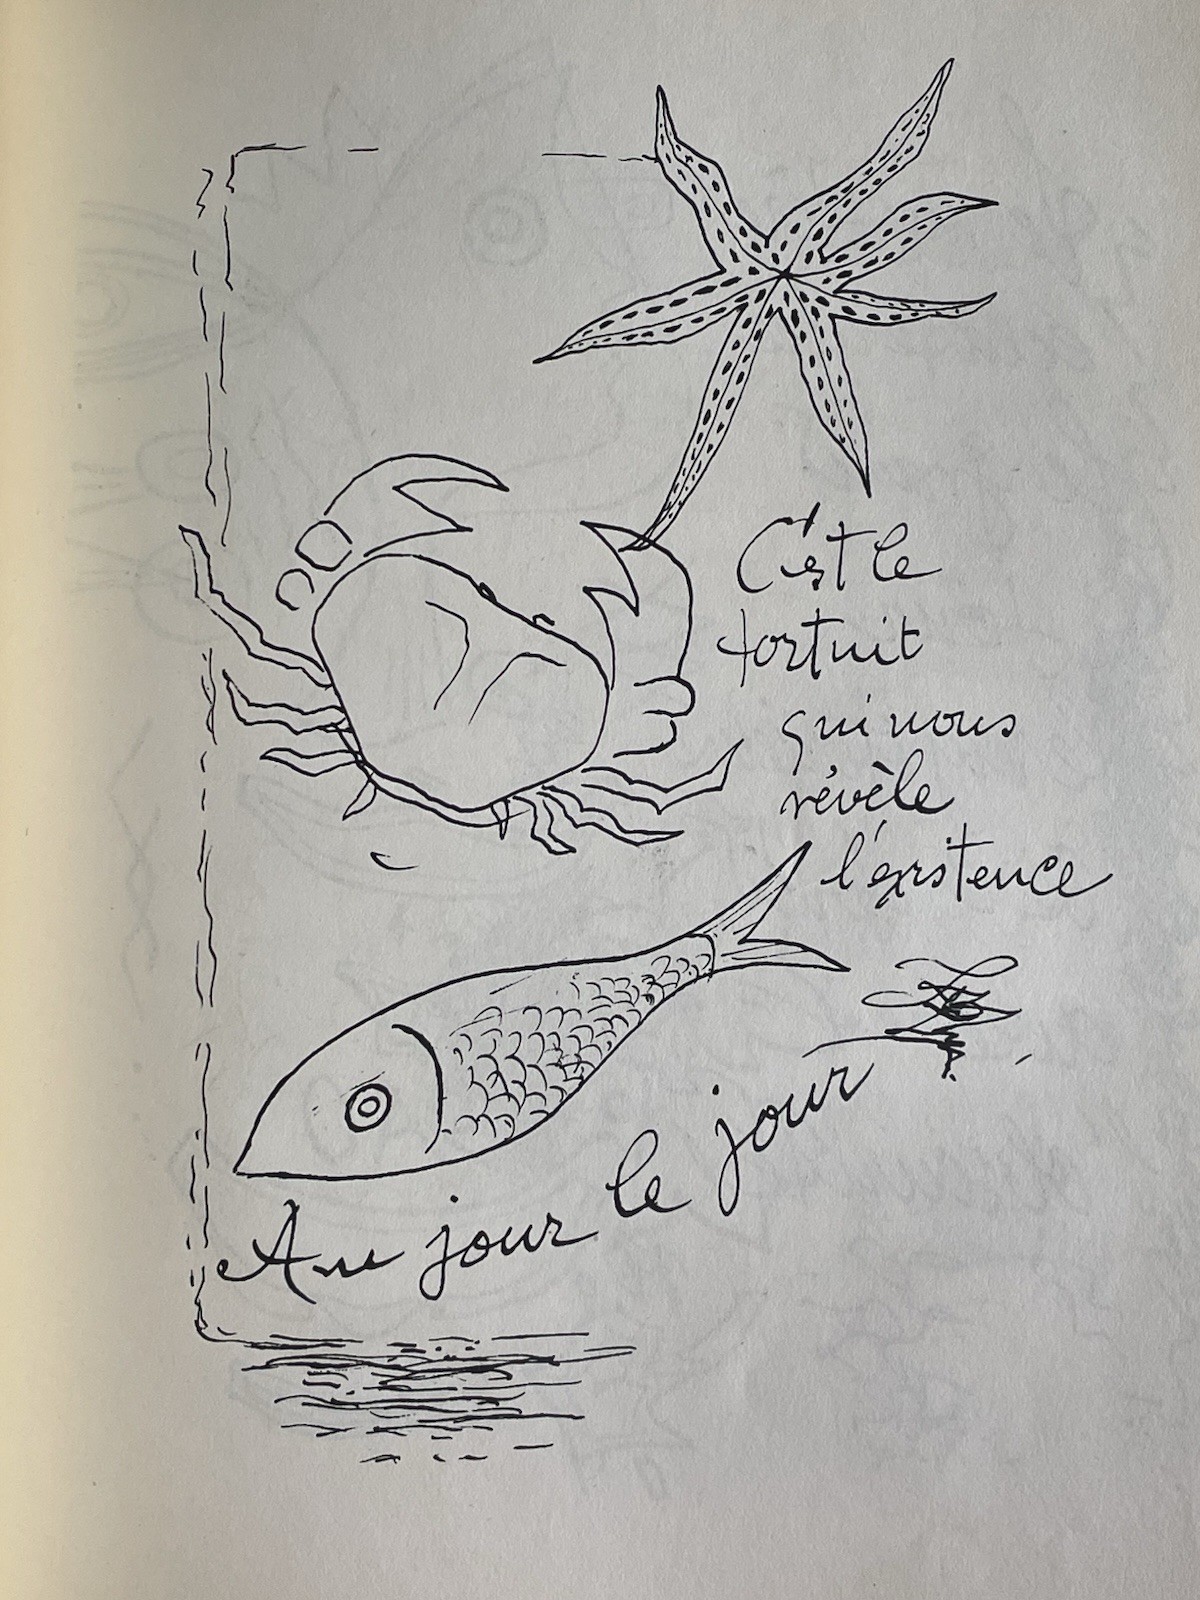 C'est le
fortuit
qui nous
révèle
l'existence
Au jour le jour